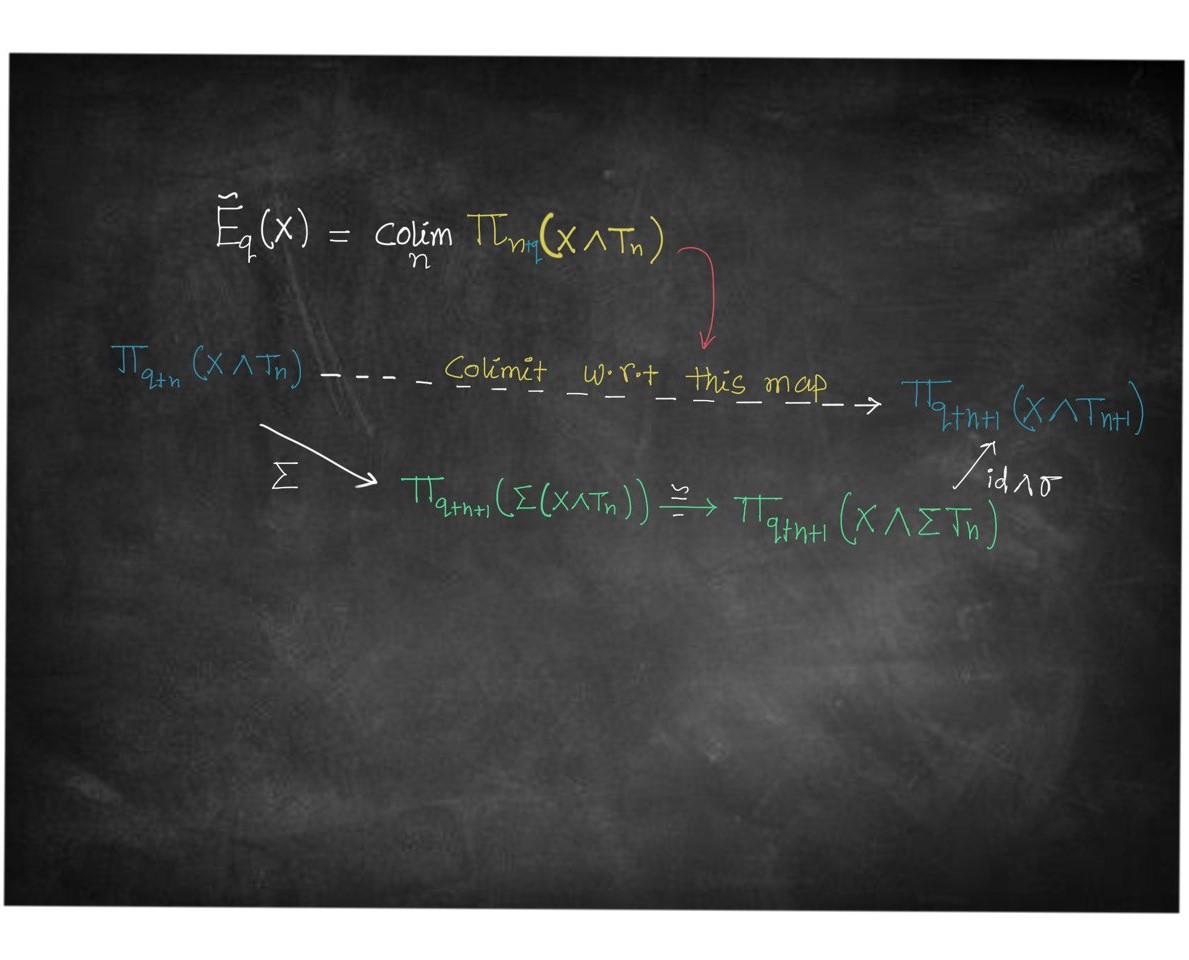 Ẽ_q(X) = colim_n π_{n+q}(X ∧ T_n)
π_{q+n}(X ∧ T_n) colimit w.r.t this map π_{q+n+1}(X ∧ T_{n+1})
Σ π_{q+n+1}(Σ(X∧T_n)) ≅ π_{q+n+1}(X ∧ ΣT_n) id∧σ